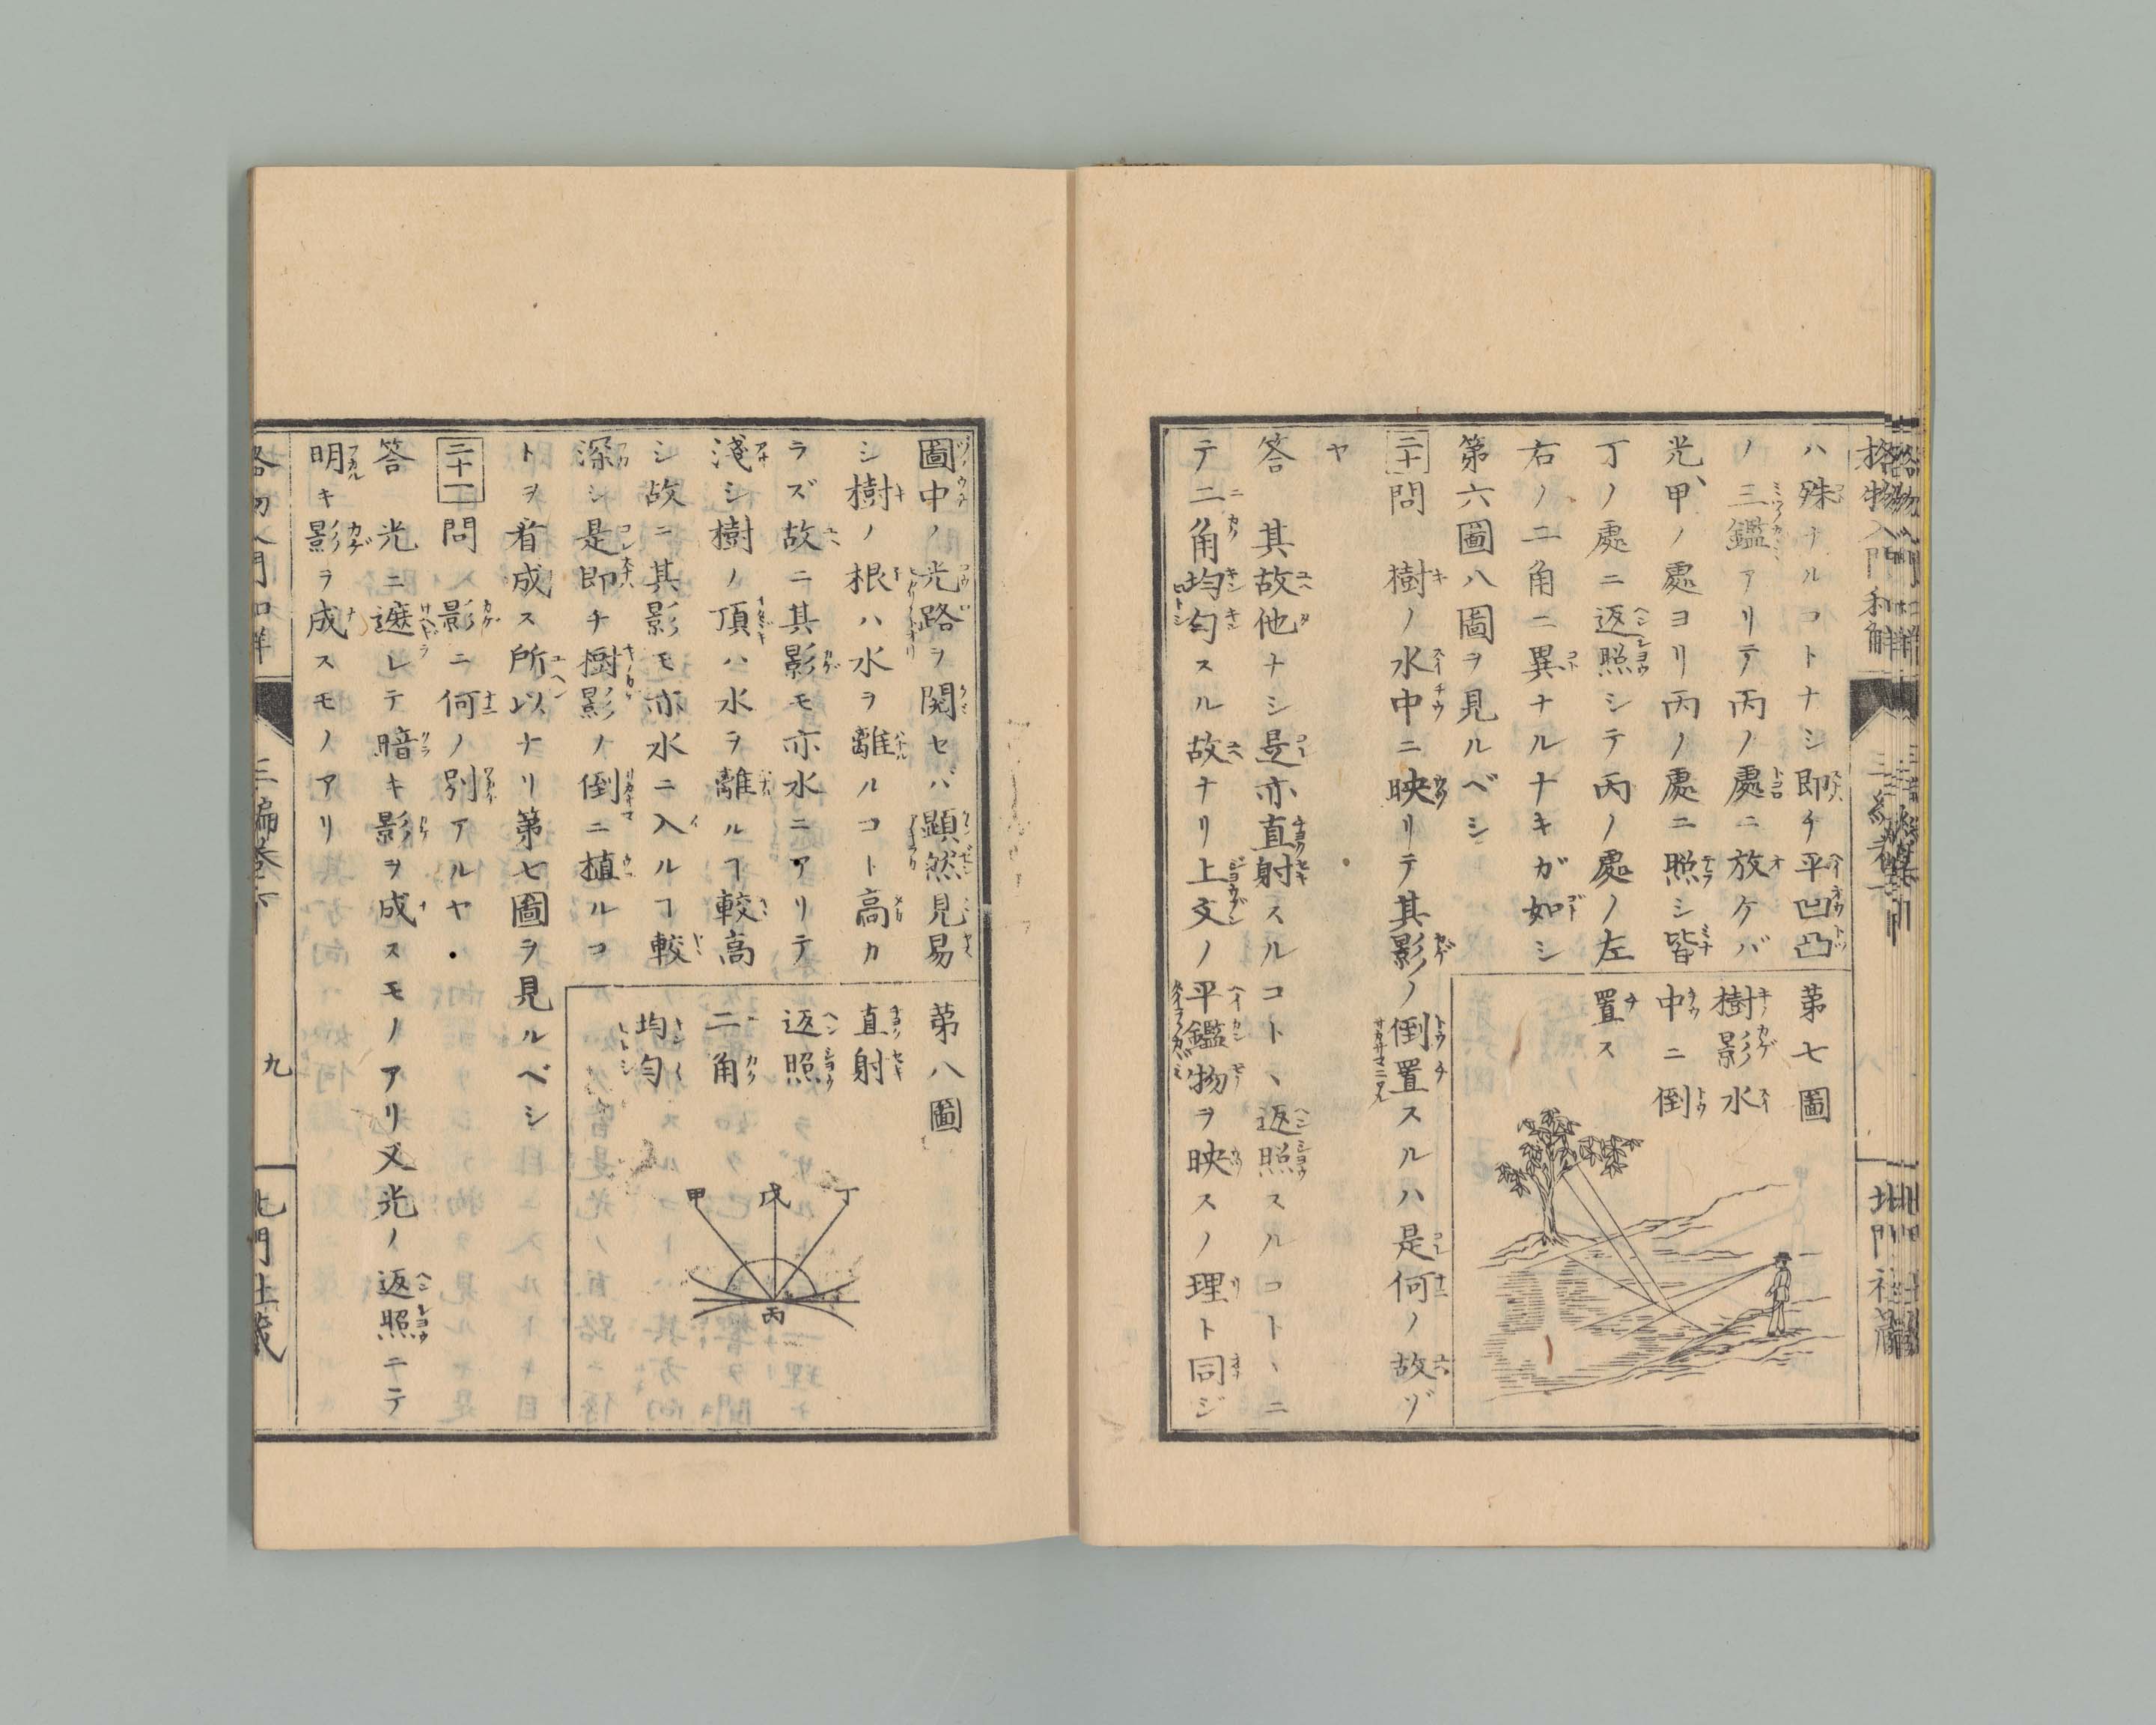 格物入門和解
三編卷下
北門社藏
ハ殊ナルコトナシ即チ平凹凸
ノ三鑑アリテ丙ノ處ニ放ケバ
光、甲ノ處ヨリ丙ノ處ニ照シ皆
丁ノ處ニ返照シテ丙ノ處ノ左
右ノ二角ニ異ナルナキガ如シ
第六圖八圖ヲ見ルベシ
第七圖
樹影水
中ニ倒
置ス
二十問 樹ノ水中ニ映リテ其影ノ倒置スルハ是何ノ故ゾ
ヤ
答 其故他ナシ是亦直射スルコトヽ返照スルコトヽニ
テ二角均勻スル故ナリ上文ノ平鑑物ヲ映スノ理ト同ジ
圖中ノ光路ヲ閲セバ顕然見易
シ樹ノ根ハ水ヲ離ルコト高カ
ラズ故ニ其影モ亦水ニアリテ
淺シ樹ノ頂ハ水ヲ離ルヿ較高
シ故ニ其影モ亦水ニ入ルヿ較
深シ是即チ樹影ノ倒ニ植ルコ
トヲ看成ス所以ナリ第七圖ヲ見ルベシ
第八圖
直射
返照
二角
均勻
甲 戊 丁
丙
二十一問 影ニ何ノ別アルヤ
答 光ニ遮レテ暗キ影ヲ成スモノアリ又光ノ返照ニテ
明キ影ヲ成スモノアリ
格物入門和解
三編卷下
九
北門社藏